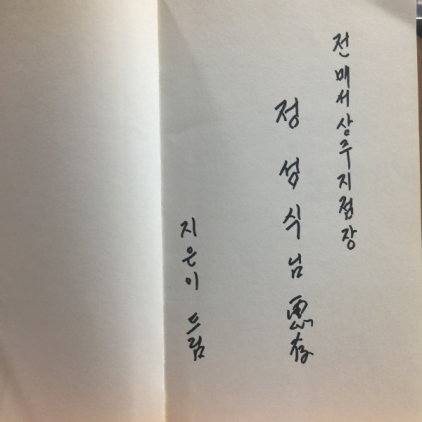 전매서상주지점장
정섭식님 惠存
지은이 드림